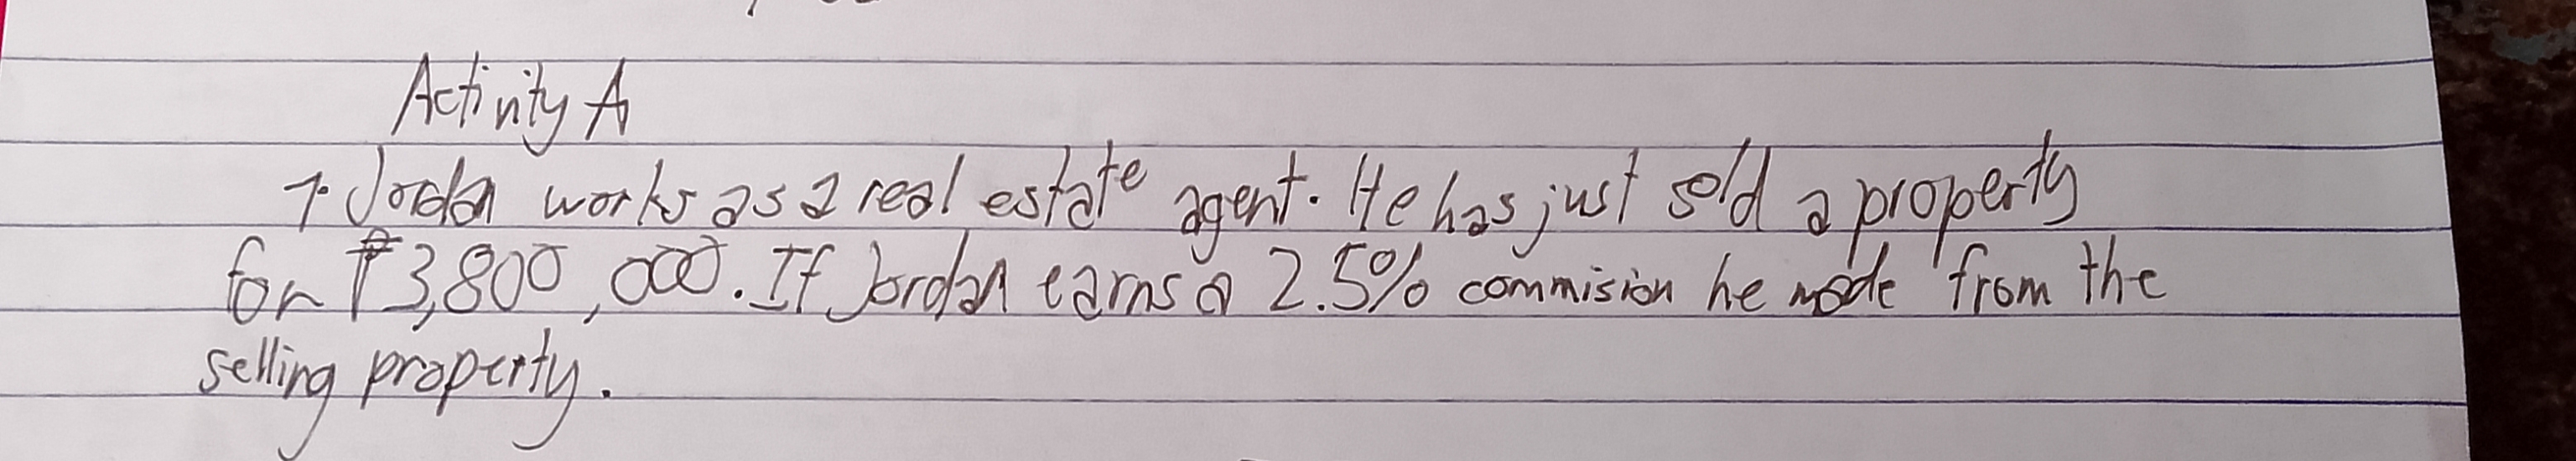 Activity A
1. Jordan works as a real estate agent. He has just sold a property
for ₱3,800,000. If Jordan earns a 2.5% commision he made from the
selling property.